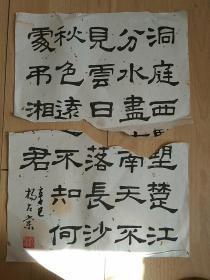 洞庭西望楚江
分水盡南天不
見雲日落長沙
秋色遠不知何
處吊湘君
辛巳